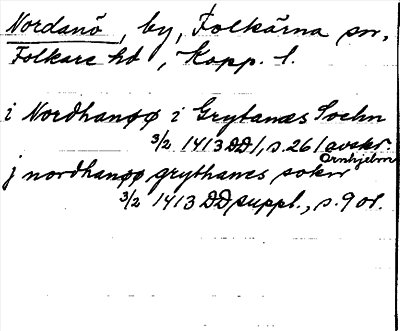 Nordanö, by, Folkärna sn,
Folkare hd, Kopp. l.
i Nordhanøø i Grytanæs Sochn
3/2 1413 DD 1, s. 261 avskr.
Örnhjelm
j nordhanøø grythanes sokn
3/2 1413 DD suppl., s. 9 or.